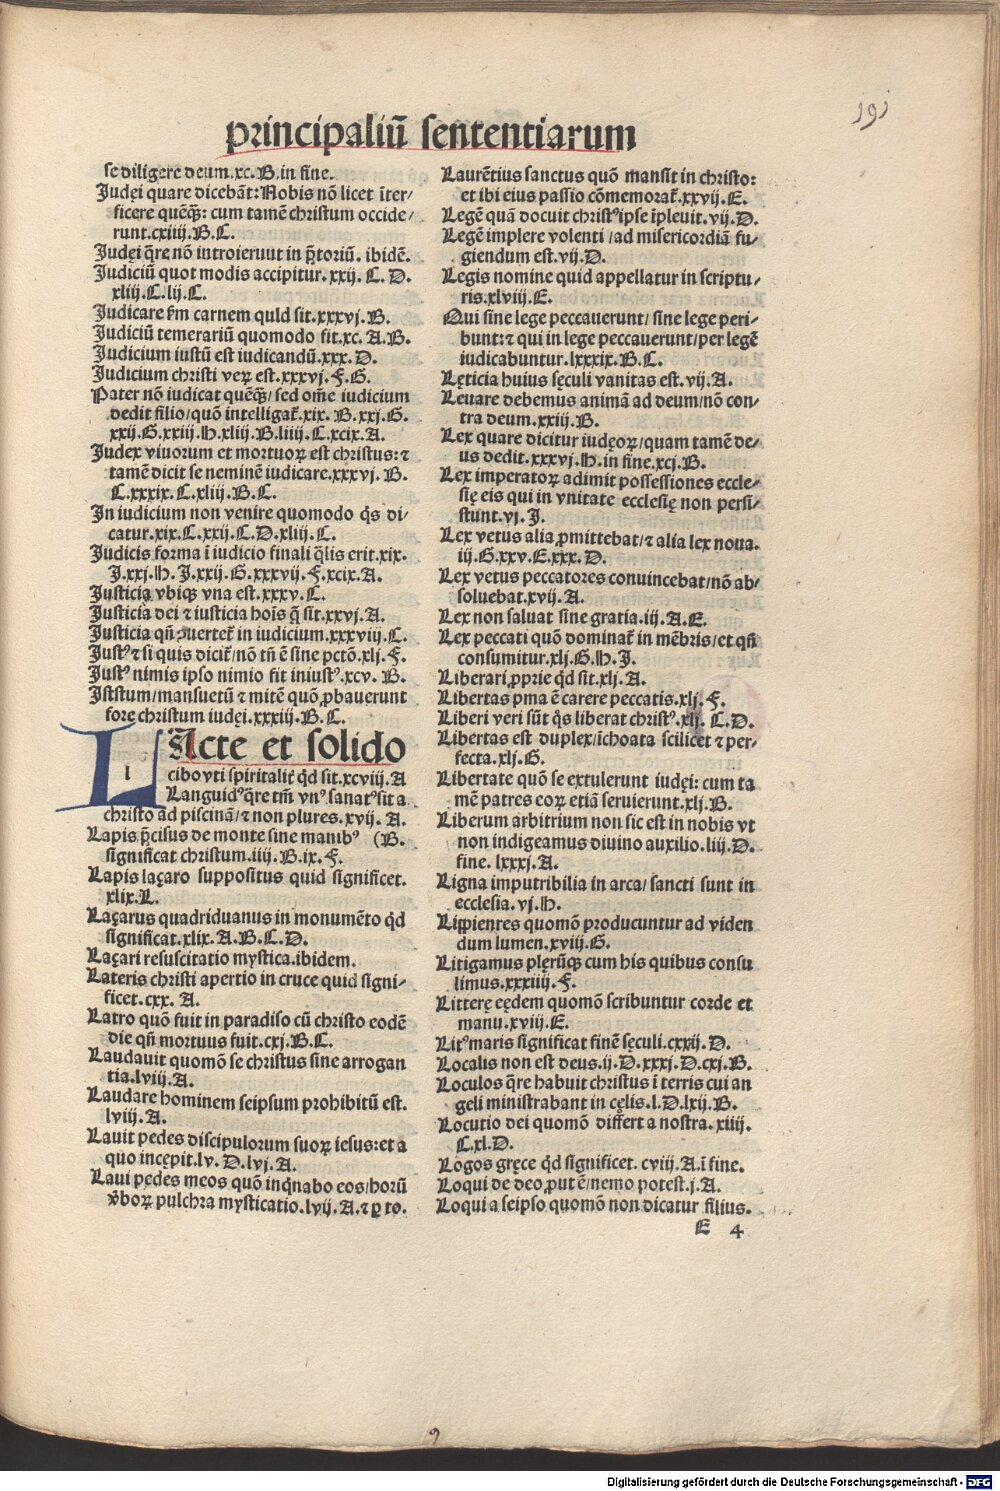 principaliū sententiarum
191
se diligere deum.xc.B.in fine.
Judęi quare dicebāt: Nobis nō licet īter⸗
ficere quēqꝫ: cum tamē christum occide⸗
runt.cxiiij.B.C.
Judęi q̄re nō introierunt in p̄toriū. ibidē.
Judiciū quot modis accipitur.xxij. C. D.
xliij.C.lij.C.
Judicare ẜm carnem quid sit.xxxvj.B.
Judiciū temerariū quomodo fit.xc. A.B.
Judicium iustū est iudicandū.xxx.D.
Judicium christi veꝝ est.xxxvj.F.G.
Pater nō iudicat quēqꝫ/ sed om̄e iudicium
dedit filio/quō intelligat᷑.xix. B.xxj.G.
xxij.G.xxiij.H.xliij.B.liiij.C.xcix.A.
Judex viuorum et mortuoꝝ est christus: ⁊
tamē dicit se neminē iudicare.xxxvj. B.
C.xxxix.C.xliij.B.C.
In iudicium non venire quomodo q̄s di⸗
catur.xix.C.xxij.C.D.xliij.C.
Judicis forma ī iudicio finali q̄lis erit.xix.
J.xxj.H.J.xxij.G.xxxvij.F.xcix.A.
Justicia vbiqꝫ vna est.xxxv.C.
Justicia dei ⁊ iusticia hoīs q̄ sit.xxvj.A.
Justicia qn̄ ꝯuertet᷑ in iudicium.xxxviij.C.
Justꝰ ⁊ si quis dicit᷑/nō tn̄ ē sine pctō.xlj.F.
Justꝰ nimis ipso nimio fit iniustꝰ.xcv. B.
Iststum/mansuetū ⁊ mitē quō ꝓbauerunt
fore christum iudęi.xxxiij.B.C.
L l Acte et solido
cibo vti spiritalit᷑ qd̄ sit.xcviij.A
Languidꝰ q̄re tm̄ vnꝰ sanatꝰ sit a
christo ad piscinā/⁊ non plures.xvij. A.
Lapis p̄cisus de monte sine manibꝰ (B.
significat christum.iiij.B.ix.F.
Lapis laçaro suppositus quid significet.
xlix.L.
Laçarus quadriduanus in monumēto qd̄
significat.xlix.A.B.C.D.
Laçari resuscitatio mystica.ibidem.
Lateris christi apertio in cruce quid signi⸗
ficet.cxx. A.
Latro quō fuit in paradiso cū christo eodē
die qn̄ mortuus fuit.cxj.B.C.
Laudauit quomō se christus sine arrogan
tia.lviij.A.
Laudare hominem seipsum prohibitū est.
lviij.A.
Lauit pedes discipulorum suoꝝ iesus: et a
quo incępit.lv. D.lvj.A.
Laui pedes meos quō inq̄nabo eos/horū
v̄boꝝ pulchra mysticatio.lvij.A.⁊ ꝑ to.
Laurētius sanctus quō mansit in christo:
et ibi eius passio cōmemorat᷑.xxvij.E.
Legē quā docuit christꝰ ipse īpleuit.vij.D.
Legē implere volenti /ad misericordiā fu⸗
giendum est.vij.D.
Legis nomine quid appellatur in scriptu⸗
ris.xlviij.E.
Qui sine lege peccauerunt/ sine lege peri⸗
bunt: ⁊ qui in lege peccauerunt/per legē
iudicabuntur.lxxxix.B.C.
Lęticia huius sęculi vanitas est.vij.A.
Leuare debemus animā ad deum/nō con⸗
tra deum.xxiij.B.
Lex quare dicitur iudęoꝝ/quam tamē de⸗
us dedit.xxxvj.H.in fine.xcj.B.
Lex imperatoꝝ adimit possessiones eccle⸗
się eis qui in vnitate ecclesię non persi⸗
stunt.vj.J.
Lex vetus alia ꝓmittebat/⁊ alia lex noua.
iij.G.xxv.E.xxx.D.
Lex vetus peccatores conuincebat/nō ab⸗
soluebat.xvij.A.
Lex non saluat sine gratia.iij.A.E.
Lex peccati quō dominat᷑ in mēbris/et qn̄
consumitur.xlj.G.H.J.
Liberari ꝓprie qd̄ sit.xlj.A.
Libertas pma ē carere peccatis.xlj.F.
Liberi veri sūt q̄s liberat christꝰ.xlj. C.D.
Libertas est duplex/ichoata scilicet ⁊ per⸗
fecta.xlj.G.
Libertate quō se extulerunt iudęi: cum ta
mē patres eoꝝ etiā seruierunt.xlj.B.
Liberum arbitrium non sic est in nobis vt
non indigeamus diuino auxilio.liij.D.
fine. lxxxj.A.
Ligna imputribilia in arca/ sancti sunt in
ecclesia.vj.H.
Lippientes quomō producuntur ad viden
dum lumen.xviij.G.
Litigamus plęrūqꝫ cum his quibus consu
limus.xxxiiij.F.
Litterę eędem quomō scribuntur corde et
manu.xviij.E.
Litꝰ maris significat finē sęculi.cxxij.D.
Localis non est deus.ij.D.xxxj.D.cxj.B.
Loculos q̄re habuit christus ī terris cui an
geli ministrabant in cęlis.l.D.lxij.B.
Locutio dei quomō differt a nostra.xiiij.
C.xl.D.
Logos gręce qd̄ significet. cviij.A.ī fine.
Loqui de deo ꝓut ē/nemo potest.j.A.
Loqui a seipso quomō non dicatur filius.
E 4
9
Digitalisierung gefördert durch die Deutsche Forschungsgemeinschaft - DFG